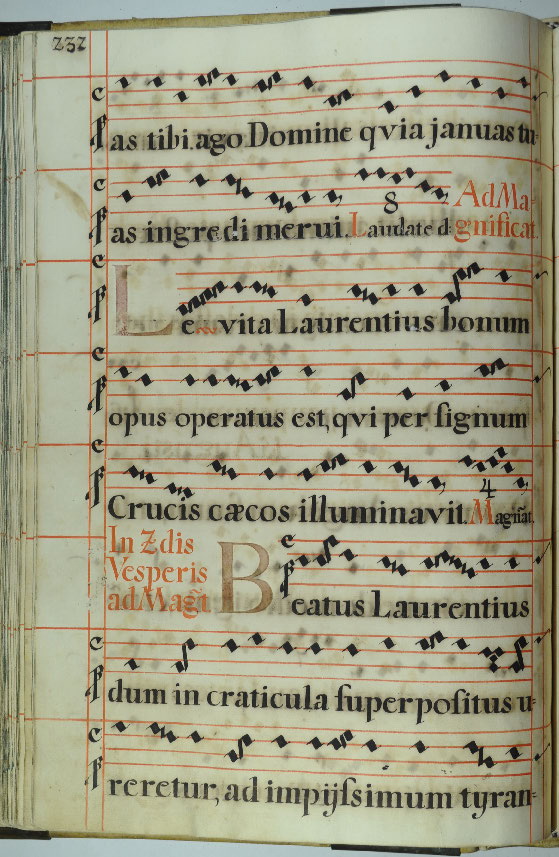 232
as tibi ago Domine qvia januas tu
as ingredi merui. Laudate d: Ad Ma-
gnificat.
Levita Laurentius bonum
opus operatus est, qvi per ſignum
Crucis cæcos illuminavit. Magn̄at.
In 2dis
Vesperis
ad Magt.
Beatus Laurentius
dum in craticula ſuperpoſitus u-
reretur, ad impijſsimum tyran-